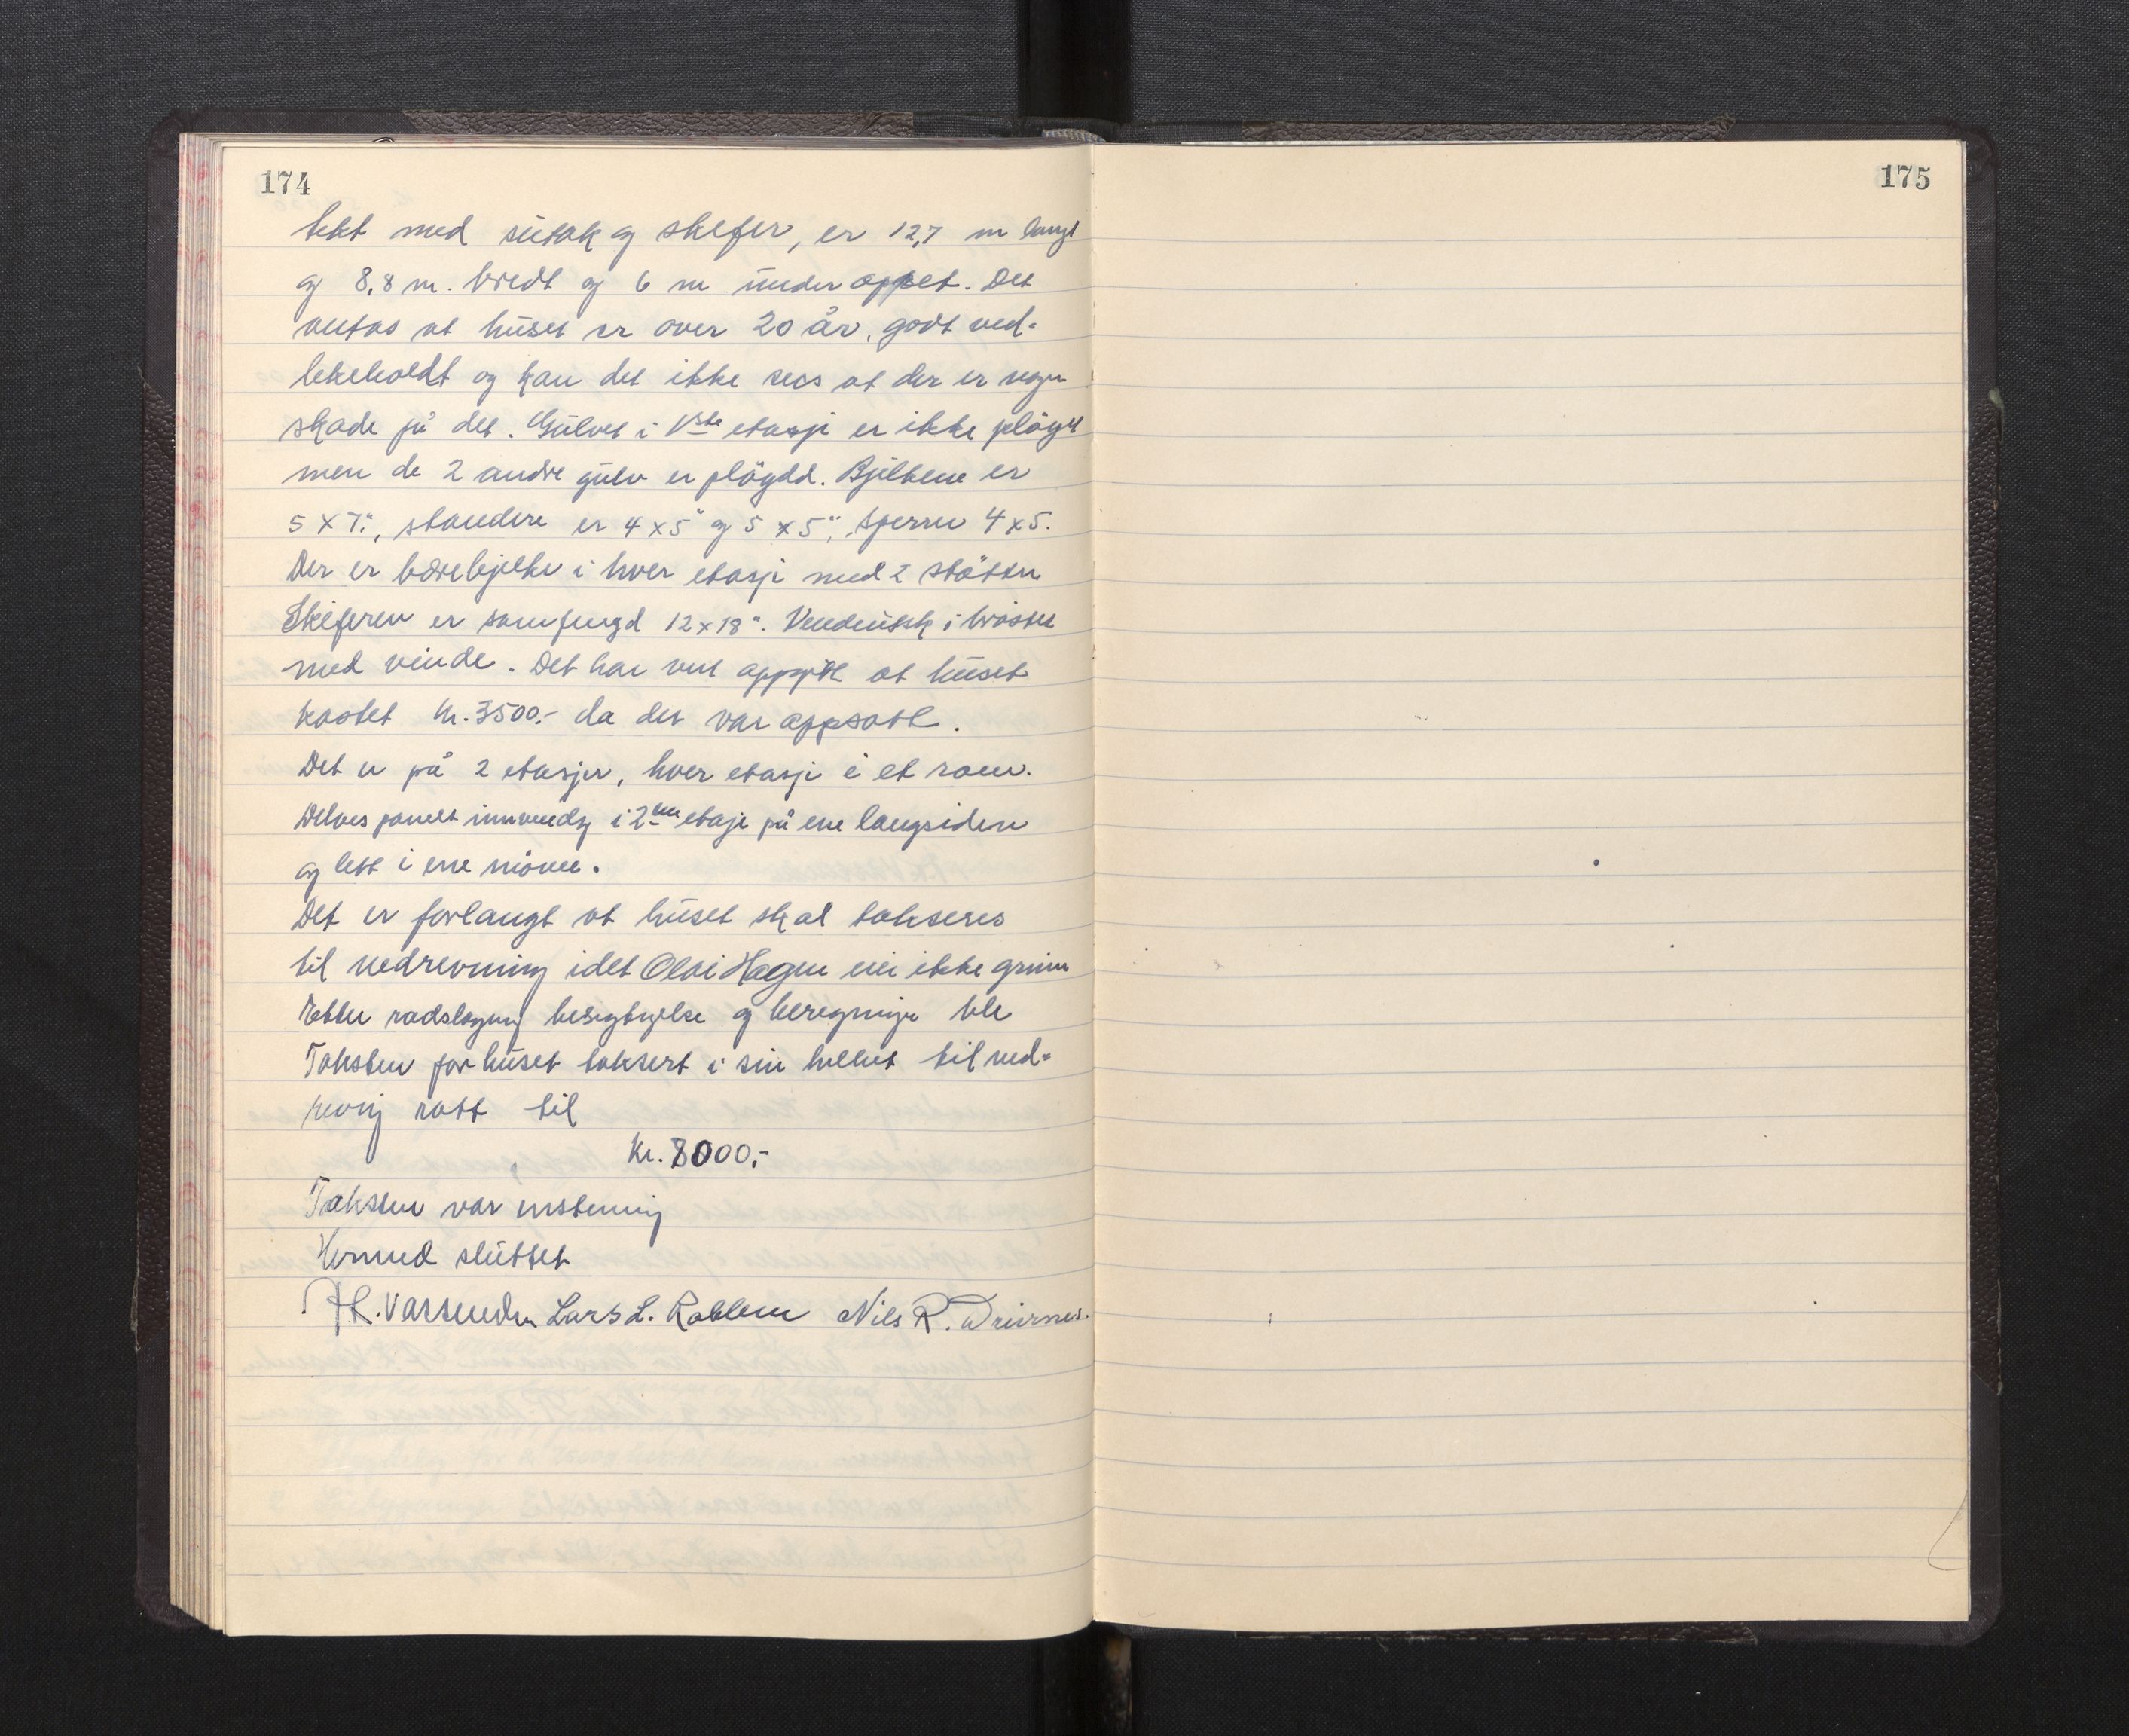 174
tekt med sutak og skefer, er 12,7 m langt
og 8,8 m. bredt og 6 m under oppset. Det
antas at huset er over 20 år, godt ved-
likeholdt og kan det ikke sees at der er nogen
skade på det. Gulvet i 1ste etasje er ikke pløgd
men de 2 andre gulv er pløgdd. Bjelkene er
5 x 7", standere er 4 x 5" og 5 x 5", sperrer 4 x 5.
Der er bærebjelke i hver etasje med 2 støtter
Skiferen er samfengd 12 x 18".
med vinde. Det har vert oppgitt at huset
kostet kr. 3500.- da det var oppsatt.
Det er på 2 etasjer, hver etasje i et rom.
Delvis panelt innvendig i 2nen etasje på ene langsiden
og lett i ene
Det er forlangt at huset skal takseres
til nedrevning idet Olai Hagen eier ikke grunn
Etter rådslagning besigtigelse og beregninger ble
Taksten for huset taksert i sin helhet til ned-
revning satt til
Kr. 8000.-
Taksten var enstemmig
Hermed sluttet
Vassenden Lars L. Nils R. Drivenes.
175